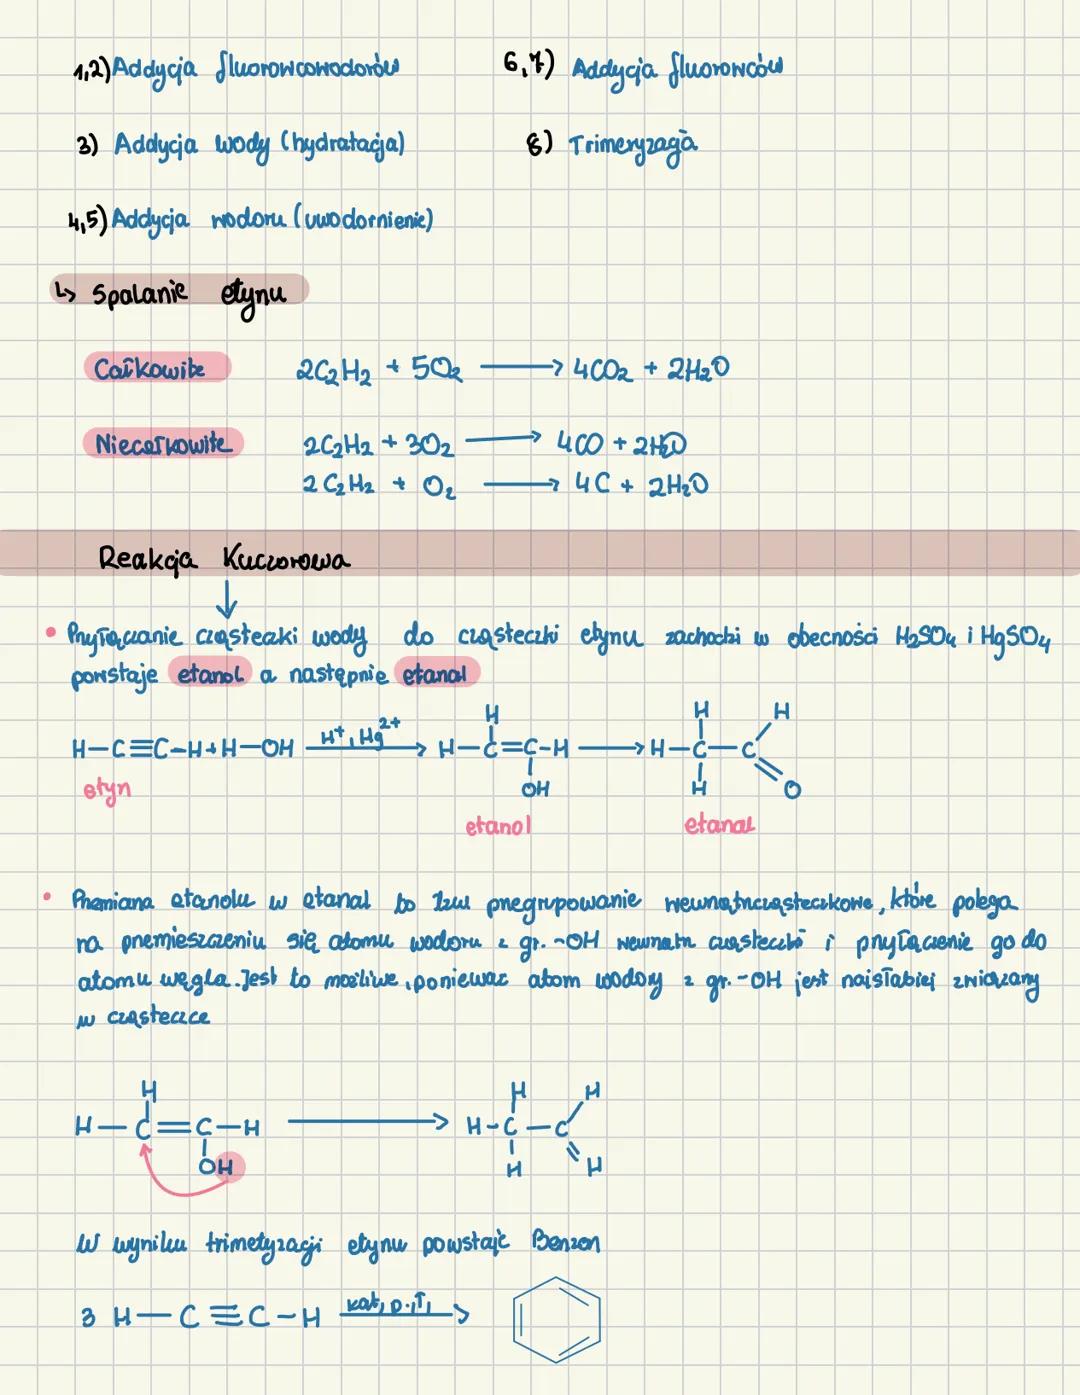 1,2) Addycja fluorowcowodorów
6,7) Addycja fluorowców
3) Addycja wody (hydratacja)
8) Trimeryzacja
4,5) Addycja wodoru (uwodornienie)
↳ Spalanie etynu
Całkowite 2C₂H₂ + 5O₂ → 4CO₂ + 2H₂O
Niecałkowite 2C₂H₂ + 3O₂ → 4CO + 2H₂O
2C₂H₂ + O₂ → 4C + 2H₂O
Reakcja Kuczorowa
↓
• Przyłączanie cząsteczki wody do cząsteczki etynu zachodzi w obecności H₂SO₄ i HgSO₄
powstaje etanol a następnie etanal
H H H
H—C≡C—H+H—OH H⁺, Hg²⁺ → H—C=C—H → H—C—C
OH H O
etyn
etanol etanal
• Przemiana etanolu w etanal to tzw przegrupowanie wewnątrzcząsteczkowe, które polega
na przemieszczeniu się atomu wodoru z gr. -OH wewnątrz cząsteczki i przyłączenie go do
atomu węgla. Jest to możliwe, ponieważ atom wodory z gr. -OH jest najsłabiej związany
w cząsteczce
H H H
H—C=C—H → H—C—C
OH H H
W wyniku trimetyzacji etynu powstaje Benzen
3 H—C≡C—H kat, p, T, →